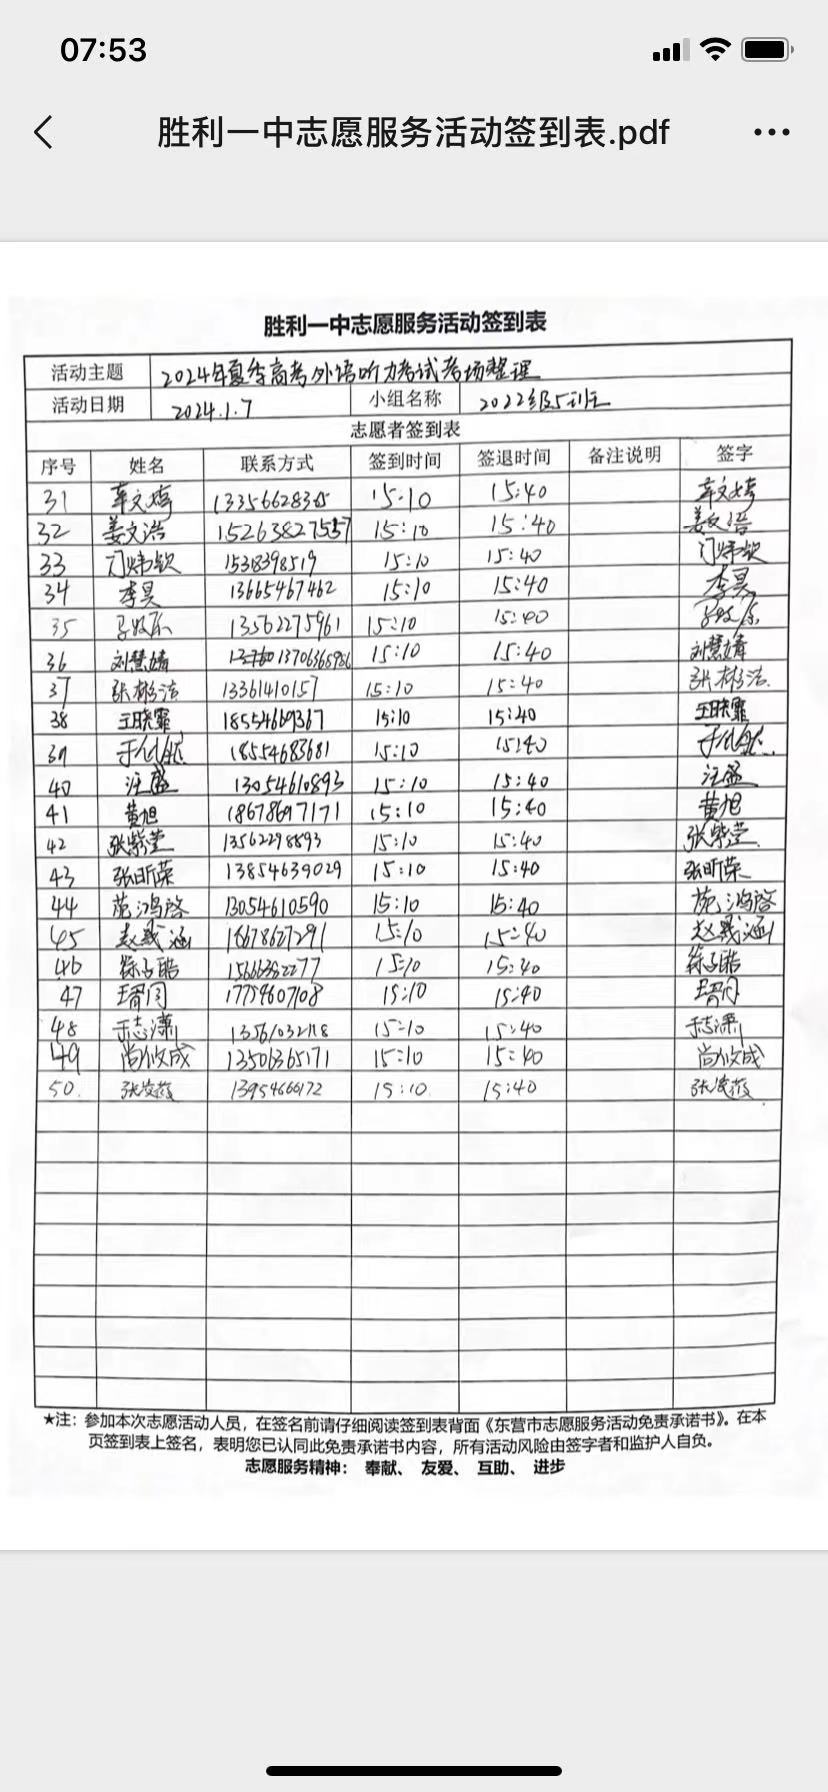 07:53
胜利一中志愿服务活动签到表.pdf
胜利一中志愿服务活动签到表
活动主题 2024年夏季高考外语听力考试考场整理
活动日期 2024.1.7 小组名称 2022级5班
志愿者签到表
序号 姓名 联系方式 签到时间 签退时间 备注说明 签字
31 15:10 15:40
32 姜文浩 15263827557 15:10 15:40 姜文浩
33 门炜钦 15318398519 15:10 15:40 门炜钦
34 李昊 13665467462 15:10 15:40 李昊
35 13562275961 15:10 15:40
36 刘慧婧 13706368986 15:10 15:40 刘慧婧
37 张彬洁 13361410157 15:10 15:40 张彬洁
38 王晓霏 18554669367 15:10 15:40 王晓霏
39 18554683681 15:10 15:40
40 汪盛 13054610893 15:10 15:40 汪盛
41 黄旭 18678697171 15:10 15:40 黄旭
42 张紫莹 13562298893 15:10 15:40 张紫莹
43 张昕荣 13854639029 15:10 15:40 张昕荣
44 范鸿啓 13054610590 15:10 15:40 范鸿啓
45 18678627291 15:10 15:40
46 徐子皓 15666362277 15:10 15:40 徐子皓
47 17754607108 15:10 15:40
48 于志潇 13561032118 15:10 15:40 于志潇
49 尚攸成 13506365171 15:10 15:40 尚攸成
50. 13954666172 15:10 15:40
★注：参加本次志愿活动人员，在签名前请仔细阅读签到表背面《东营市志愿服务活动免责承诺书》。在本
页签到表上签名，表明您已认同此免责承诺书内容，所有活动风险由签字者和监护人自负。
志愿服务精神： 奉献、 友爱、 互助、 进步